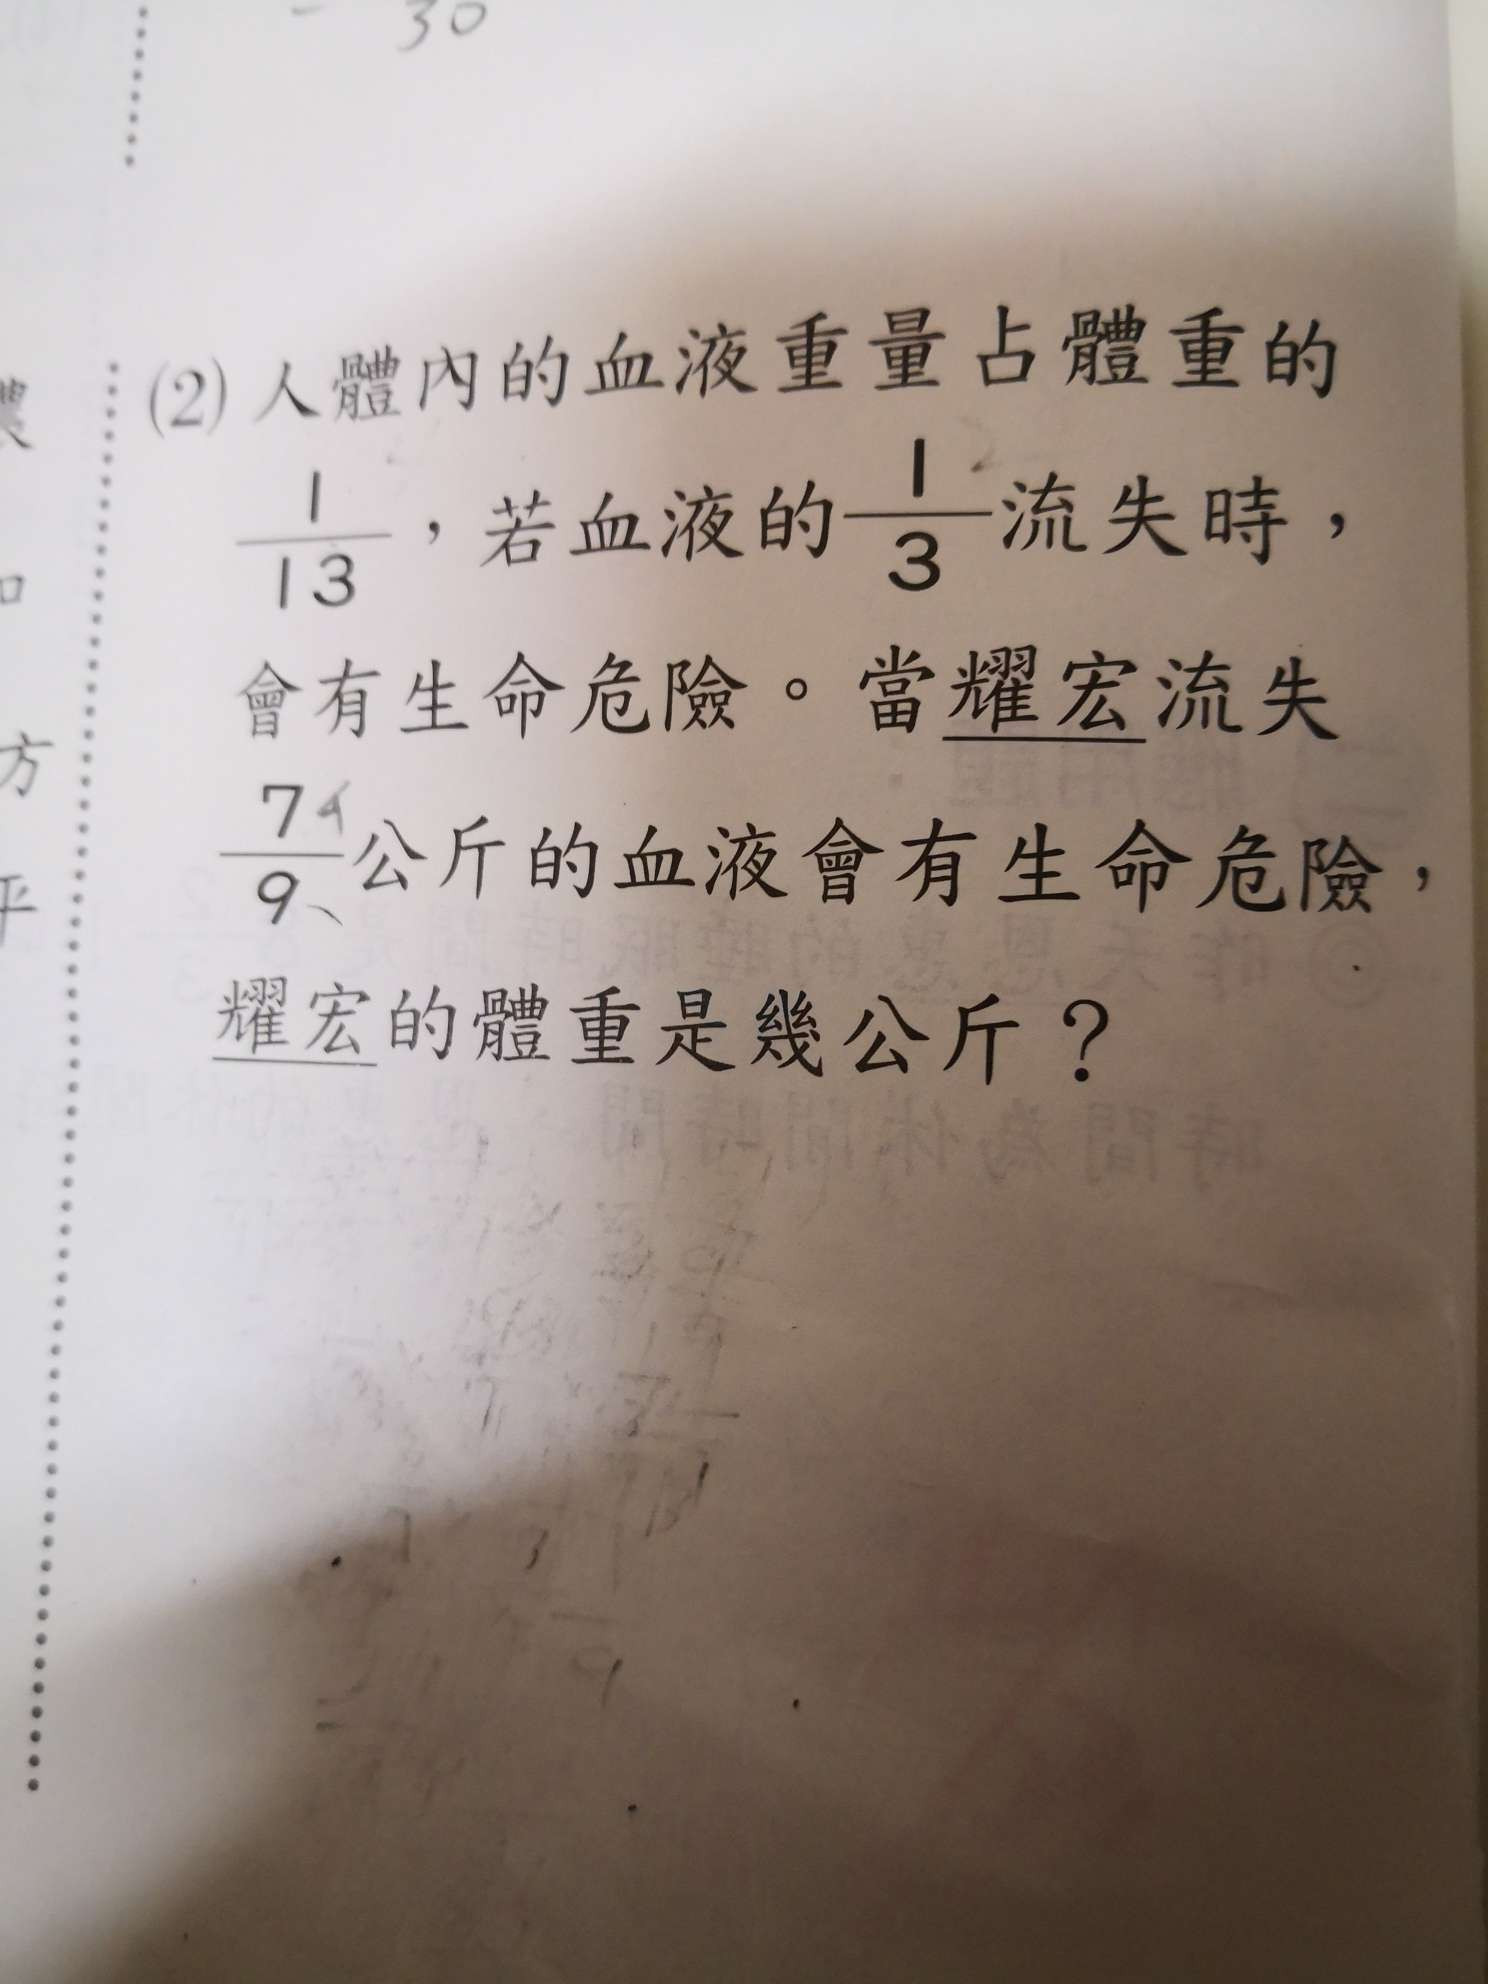 30
(2) 人體內的血液重量占體重的
1/13，若血液的1/3流失時，
會有生命危險。當耀宏流失
7/9公斤的血液會有生命危險，
耀宏的體重是幾公斤？